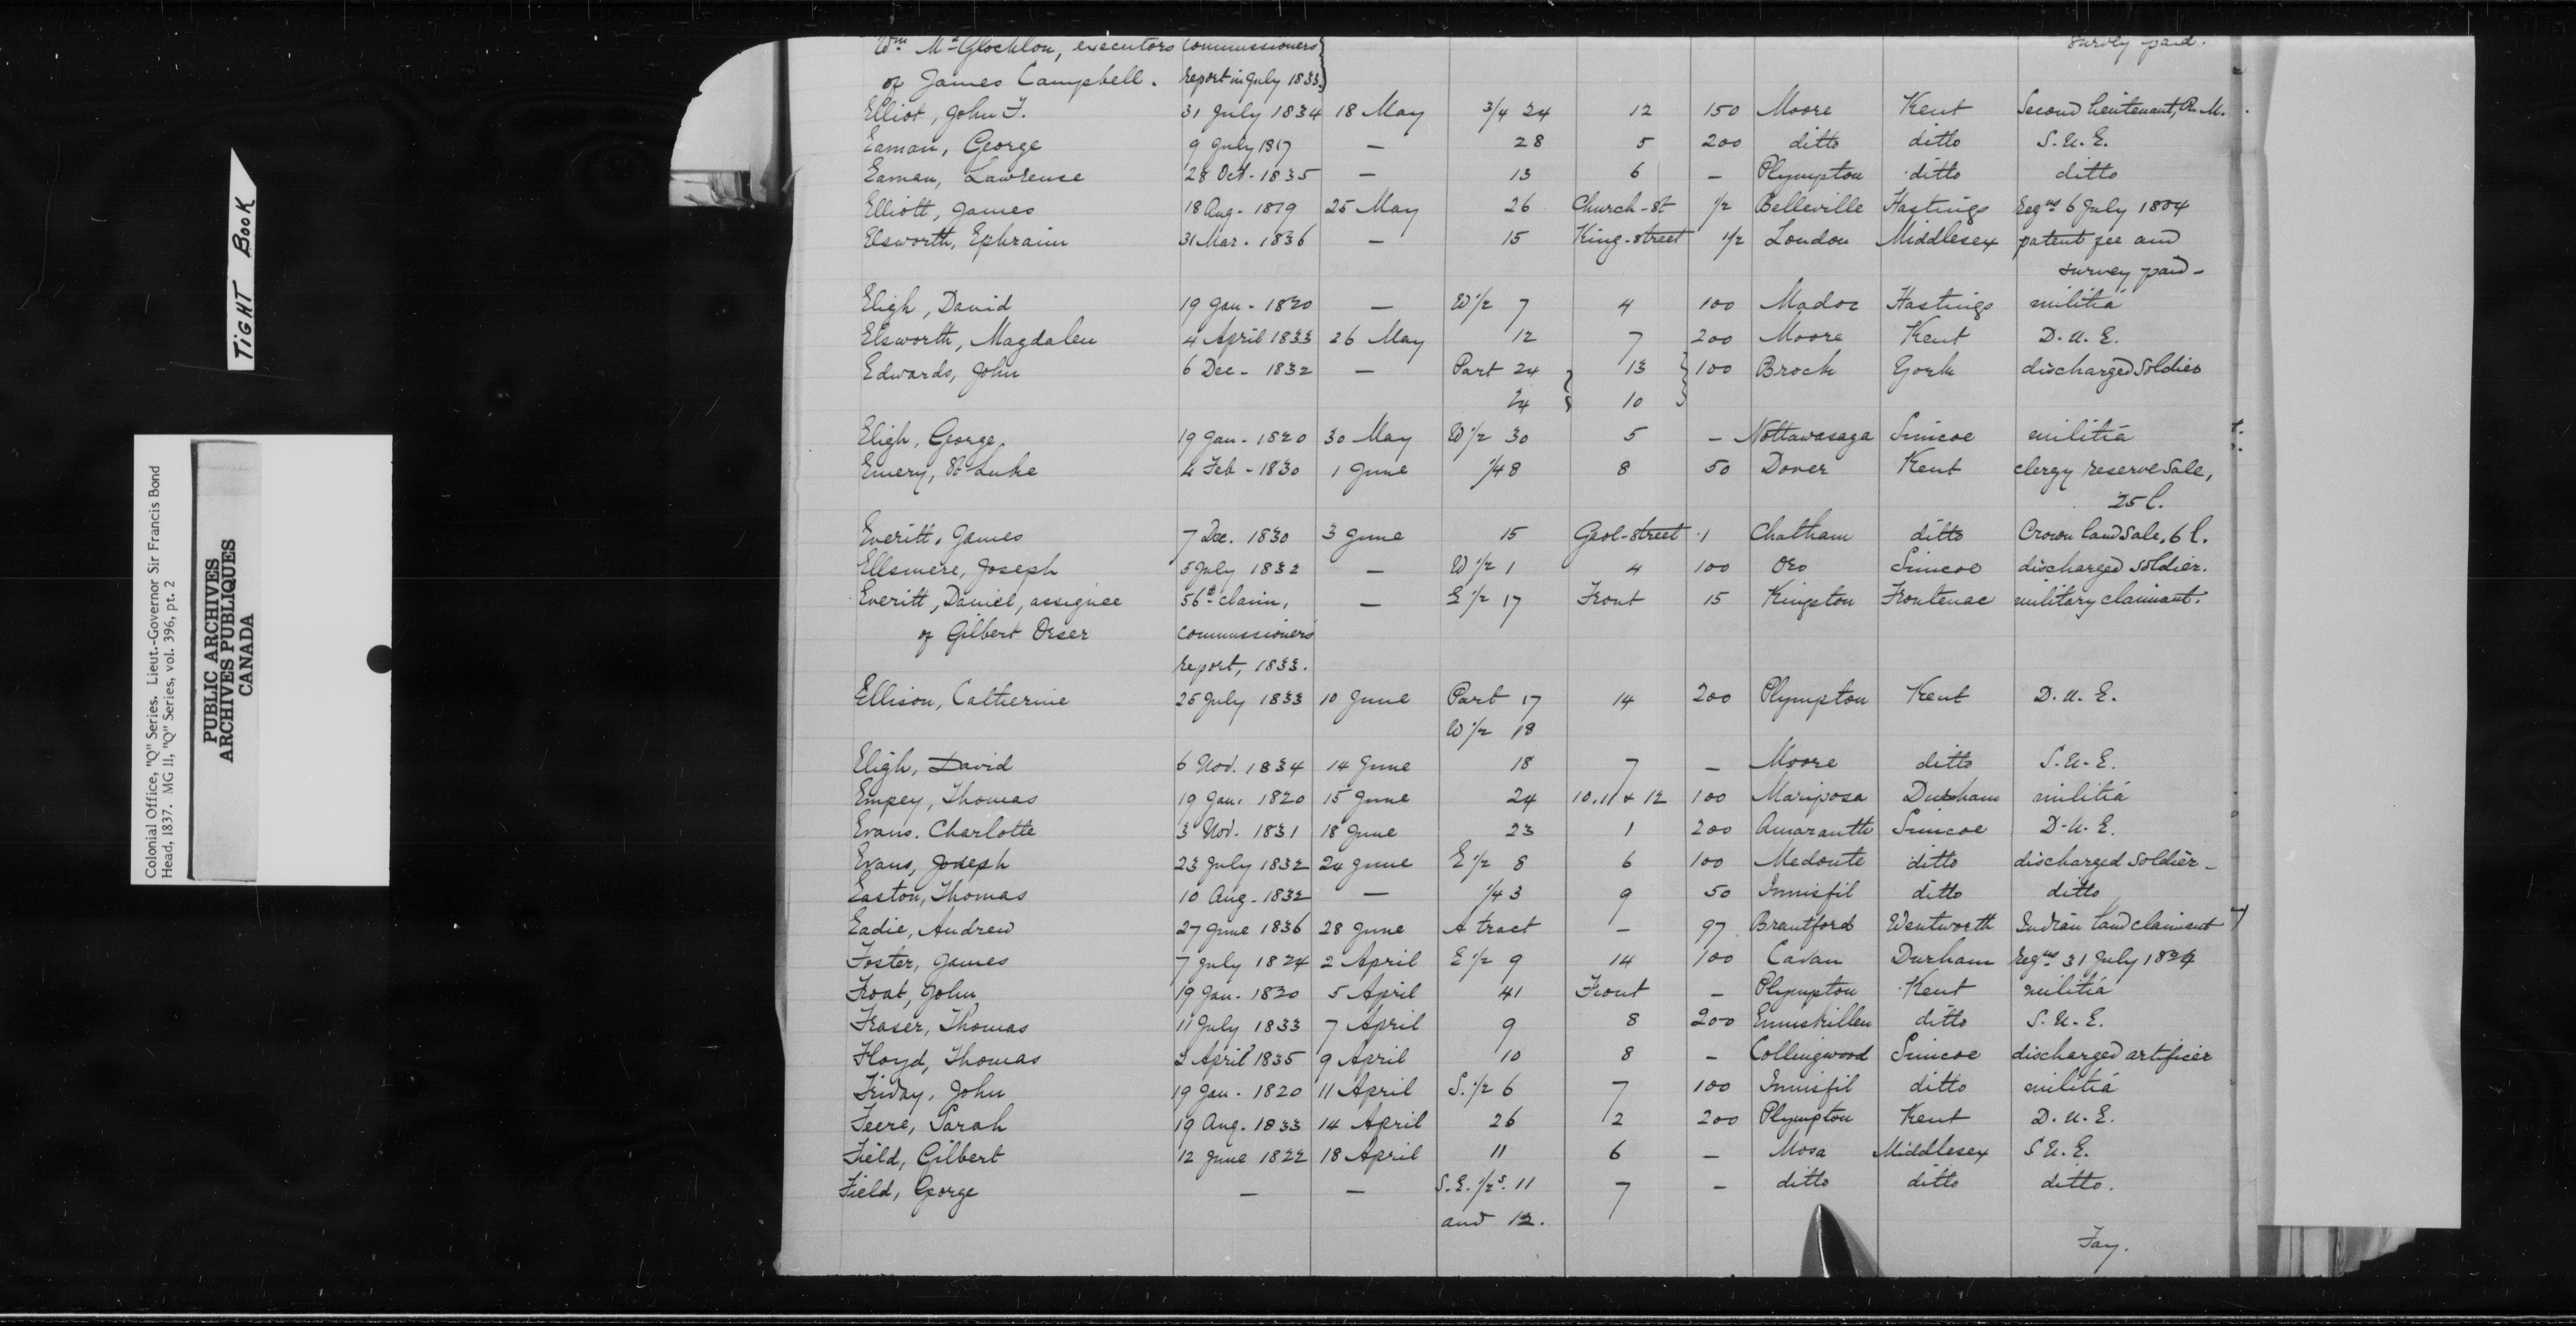 TIGHT BOOK
Colonial Office, "Q" Series. Lieut.-Governor Sir Francis Bond
Head, 1837. MG 11, "Q" Series, vol. 396, pt. 2
PUBLIC ARCHIVES
ARCHIVES PUBLIQUES
CANADA
Wm McGlochlon, executors commissioners survey paid.
of James Campbell. report in July 1833.
Elliot, John F. 31 July 1834 18 May 3/4 24 12 150 Moore Kent Second lieutenant, R. M.
Eaman, George 9 July 1817 — 28 5 200 ditto ditto S. U. E.
Eaman, Lawrence 28 Oct. 1835 — 13 6 — Plympton ditto ditto
Elliott, James 18 Aug. 1819 25 May 26 Church-st 1/2 Belleville Hastings Regns 6 July 1804
Elsworth, Ephraim 31 Mar. 1836 — 15 King-street 1/2 London Middlesex patent fee and
survey paid-
Eligh, David 19 Jan. 1820 — W 1/2 7 4 100 Madoc Hastings militia
Elsworth, Magdalen 4 April 1833 26 May 12 7 200 Moore Kent D. U. E.
Edwards, John 6 Dec. 1832 — Part 24 13 100 Brock York discharged soldier
24 10
Eligh, George, 19 Jan. 1820 30 May W 1/2 30 5 — Nottawasaga Simcoe militia
Emery, St Luke 4 Feb - 1830 1 June 1/4 8 8 50 Dover Kent clergy reserve sale,
25 l.
Everitt, James 7 Dec. 1830 3 June 15 Gaol-street 1 Chatham ditto Crown land sale, 6 l.
Ellsmere, Joseph 5 July 1832 — W 1/2 1 4 100 Oro Simcoe discharged soldier.
Everitt, Daniel, assignee 56th claim, — E 1/2 17 Front 15 Kingston Frontenac military claimant.
of Gilbert Orser commissioners
report, 1833.
Ellison, Catherine 25 July 1833 10 June Part 17 14 200 Plympton Kent D. U. E.
W 1/2 18
Eligh, David 6 Nov. 1834 14 June 18 7 — Moore ditto S. U. E.
Empey, Thomas 19 Jan. 1820 15 June 24 10. 11 & 12 100 Mariposa Durham militia
Evans. Charlotte 3 Nov. 1831 18 June 23 1 200 Amaranth Simcoe D. U. E.
Evans, Joseph 23 July 1832 24 June E 1/2 8 6 100 Medonte ditto discharged soldier-
Easton, Thomas 10 Aug. 1832 — 1/4 3 9 50 Innisfil ditto ditto
Eadie, Andrew 27 June 1836 28 June A tract — 97 Brantford Wentworth Indian land claimant
Foster, James 7 July 1824 2 April E 1/2 9 14 100 Cavan Durham Regns 31 July 1834
Froat, John 19 Jan. 1820 5 April 41 Front — Plympton Kent militia
Fraser, Thomas 11 July 1833 7 April 9 8 200 Enniskillen ditto S. U. E.
Floyd, Thomas 2 April 1835 9 April 10 8 — Collingwood Simcoe discharged artificer
Friday, John 19 Jan. 1820 11 April S. 1/2 6 7 100 Innisfil ditto militia
Feere, Sarah 19 Aug. 1833 14 April 26 2 200 Plympton Kent D. U. E.
Field, Gilbert 12 June 1822 18 April 11 6 — Mosa Middlesex S U. E.
Field, George — — S. E. 1/2s. 11 7 — ditto ditto ditto.
and 12.
Fay.